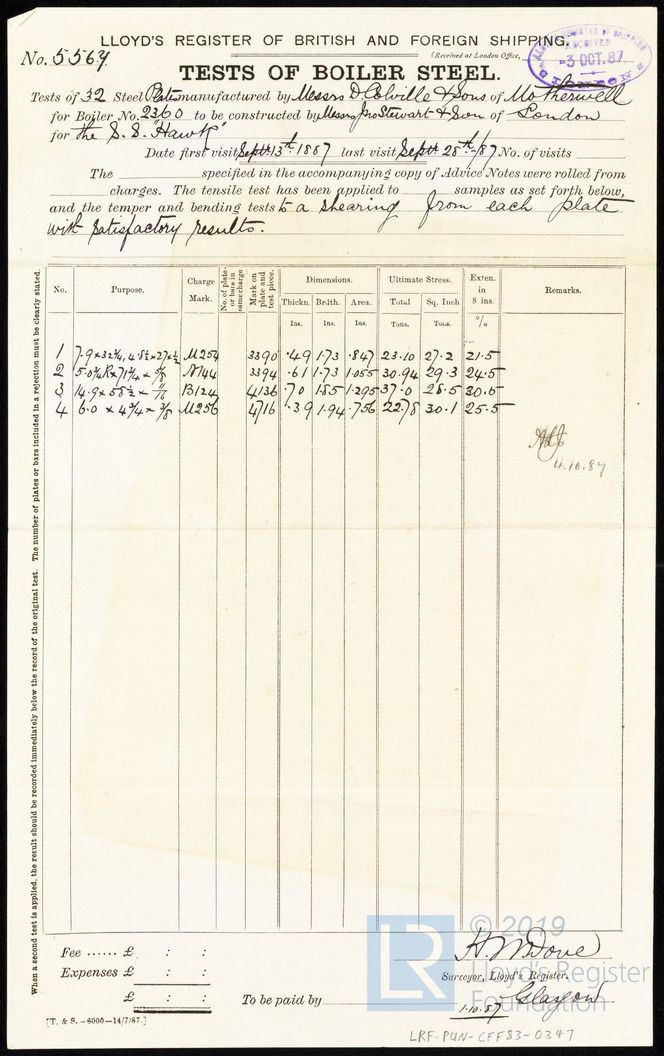 LLOYD'S REGISTER OF BRITISH AND FOREIGN SHIPPING.
No. 5569.
(Received at London Office,
RECEIVED
3 OCT. 87
LONDON
TESTS OF BOILER STEEL.
Tests of 32 Steel Plates manufactured by Messrs D. Colville & Sons of Motherwell
for Boiler No. 2360 to be constructed by Messrs Jno Stewart & Son of London
for the S.S. "Hawk"
Date first visit Septr 13th 1887 last visit Septr 28th /87 No. of visits
The specified in the accompanying copy of Advice Notes were rolled from
charges. The tensile test has been applied to samples as set forth below,
and the temper and bending tests to a shearing from each plate
with satisfactory results.
When a second test is applied, the result should be recorded immediately below the record of the original test. The number of plates or bars included in a rejection must be clearly stated.
No. Purpose. Charge Mark. No. of plates or bars in same charge Mark on plate and test piece. Dimensions. Ultimate Stress. Exten. in 8 ins. Remarks.
Thickn. Brdth. Area. Total Sq. Inch
Ins. Ins. Ins. Tons. Tons. %
1 7.9 x 32¾, 4.8½ x 27 x ½ M254 3390 .49 1.73 .847 23.10 27.2 21.5
2 5.0¾ R x 71¼ x 5/8 N144 3394 .61 1.73 1.055 30.94 29.3 24.5
3 14.9 x 58½ x 11/16 B124 4136 .70 1.85 1.295 37.0 28.5 30.5
4 6.0 x 4¾ x 3/8 M256 4716 .39 1.94 .756 22.78 30.1 25.5
4.10.87
Fee ...... £ : :
Expenses £ : :
£ : :
To be paid by
H. M Dove
Surveyor, Lloyd's Register.
Glasgow
1.10.87
[T. & S. –6000–14/7/87.]
LRF-PUN-CFF83-0347
LR
© 2019
Lloyd's Register
Foundation